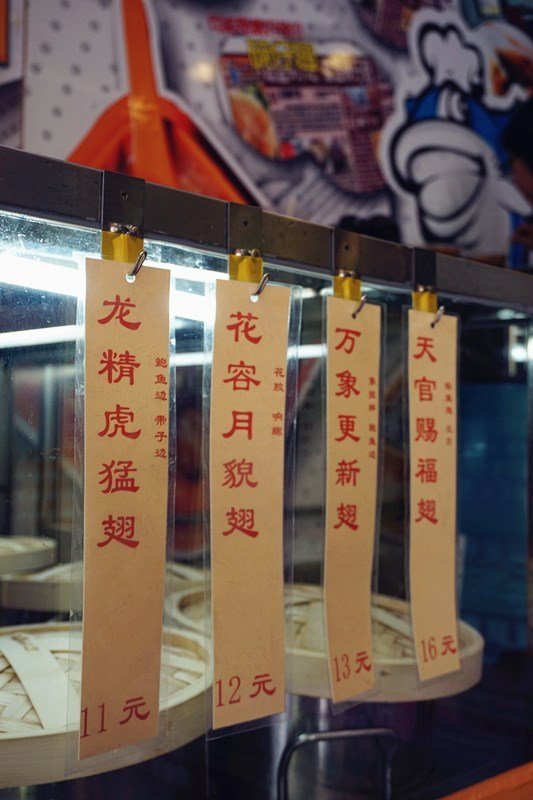 龙精虎猛翅
鲍鱼边 带子边
11元
花容月貌翅
花胶 响螺
12元
万象更新翅
13元
天官赐福翅
16元